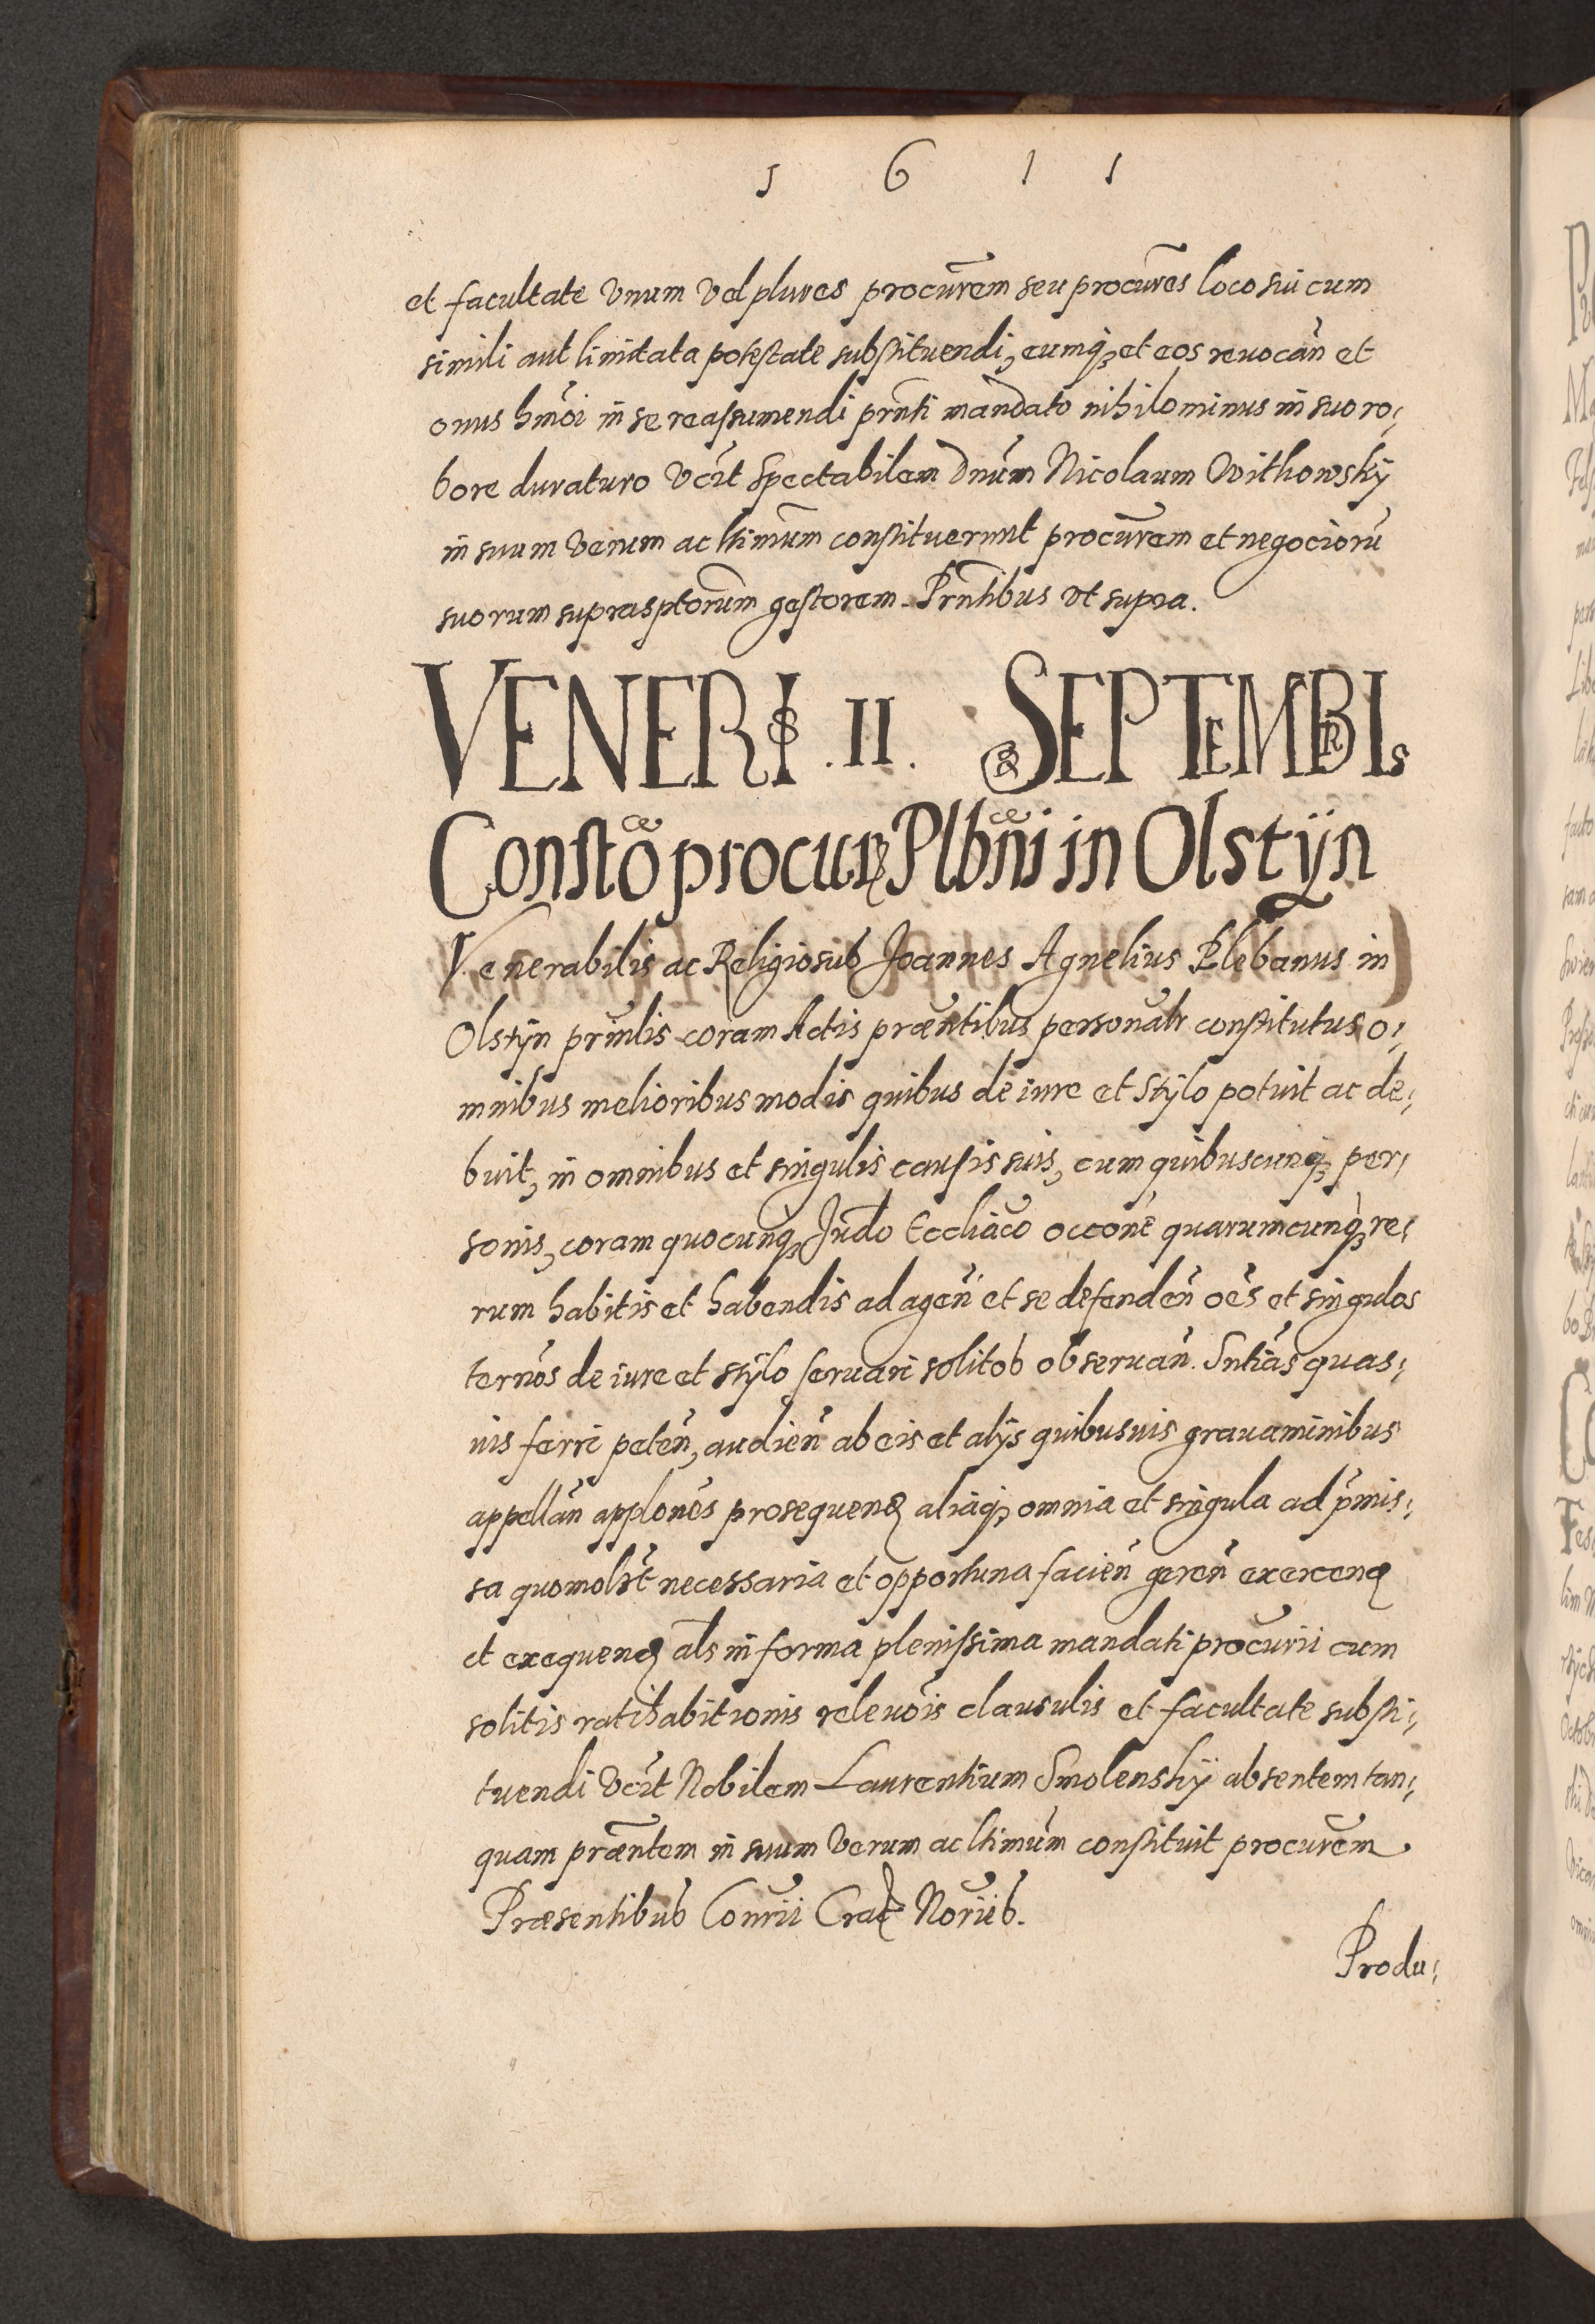 1 6 1 1
et facultate vnum vel plures procurem seu procures loco sui cum
simili aut limitata potestate substituendi, eumq; et eos reuocan et
onus hmoi in se reassumendi prnti mandato nihilominus in suo ro,
bore duraturo vcit Spectabilem Dnum Nicolaum Withowskÿ
in suum verum ac ltimum constituerunt procurem et negociorū
suorum suprasptorum gestorem. Prntibus vt supra.
VENERIS .II. SEPTEMBRIS
Constō procur Plbni in Olstÿn
Venerabilis ac Religiosus Joannes Agnelius Plebanus in
Olstÿn prinlis coram Actis præntibus personalr constitutus o,
mnibus melioribus modis quibus de iure et Stÿlo potuit ac de,
buit, in omnibus et singulis causis suis, cum quibuscunq; per,
sonis, coram quocunq; Judo Eccliaco occone quarumcunq; re,
rum habitis et habendis ad agen et se defenden oēs et singulos
ternos de iure et stÿlo seruari solitos obseruan. Sntias quas,
uis ferri peten, audien ab eis et alÿs quibusuis grauaminibus
appellan applones prosequen aliaq; omnia et singula ad pmis,
sa quomolbt necessaria et opportuna facien geren exercen
et exequen als in forma plenissima mandati procurii cum
solitis ratihabitionis releuois clausulis et facultate substi,
tuendi vcit Nobilem Laurentium Smolenskÿ absentem tan,
quam præntem in suum verum ac ltimum constituit procurem
Præsentibus Conrii Crac Noriis.
Produ,